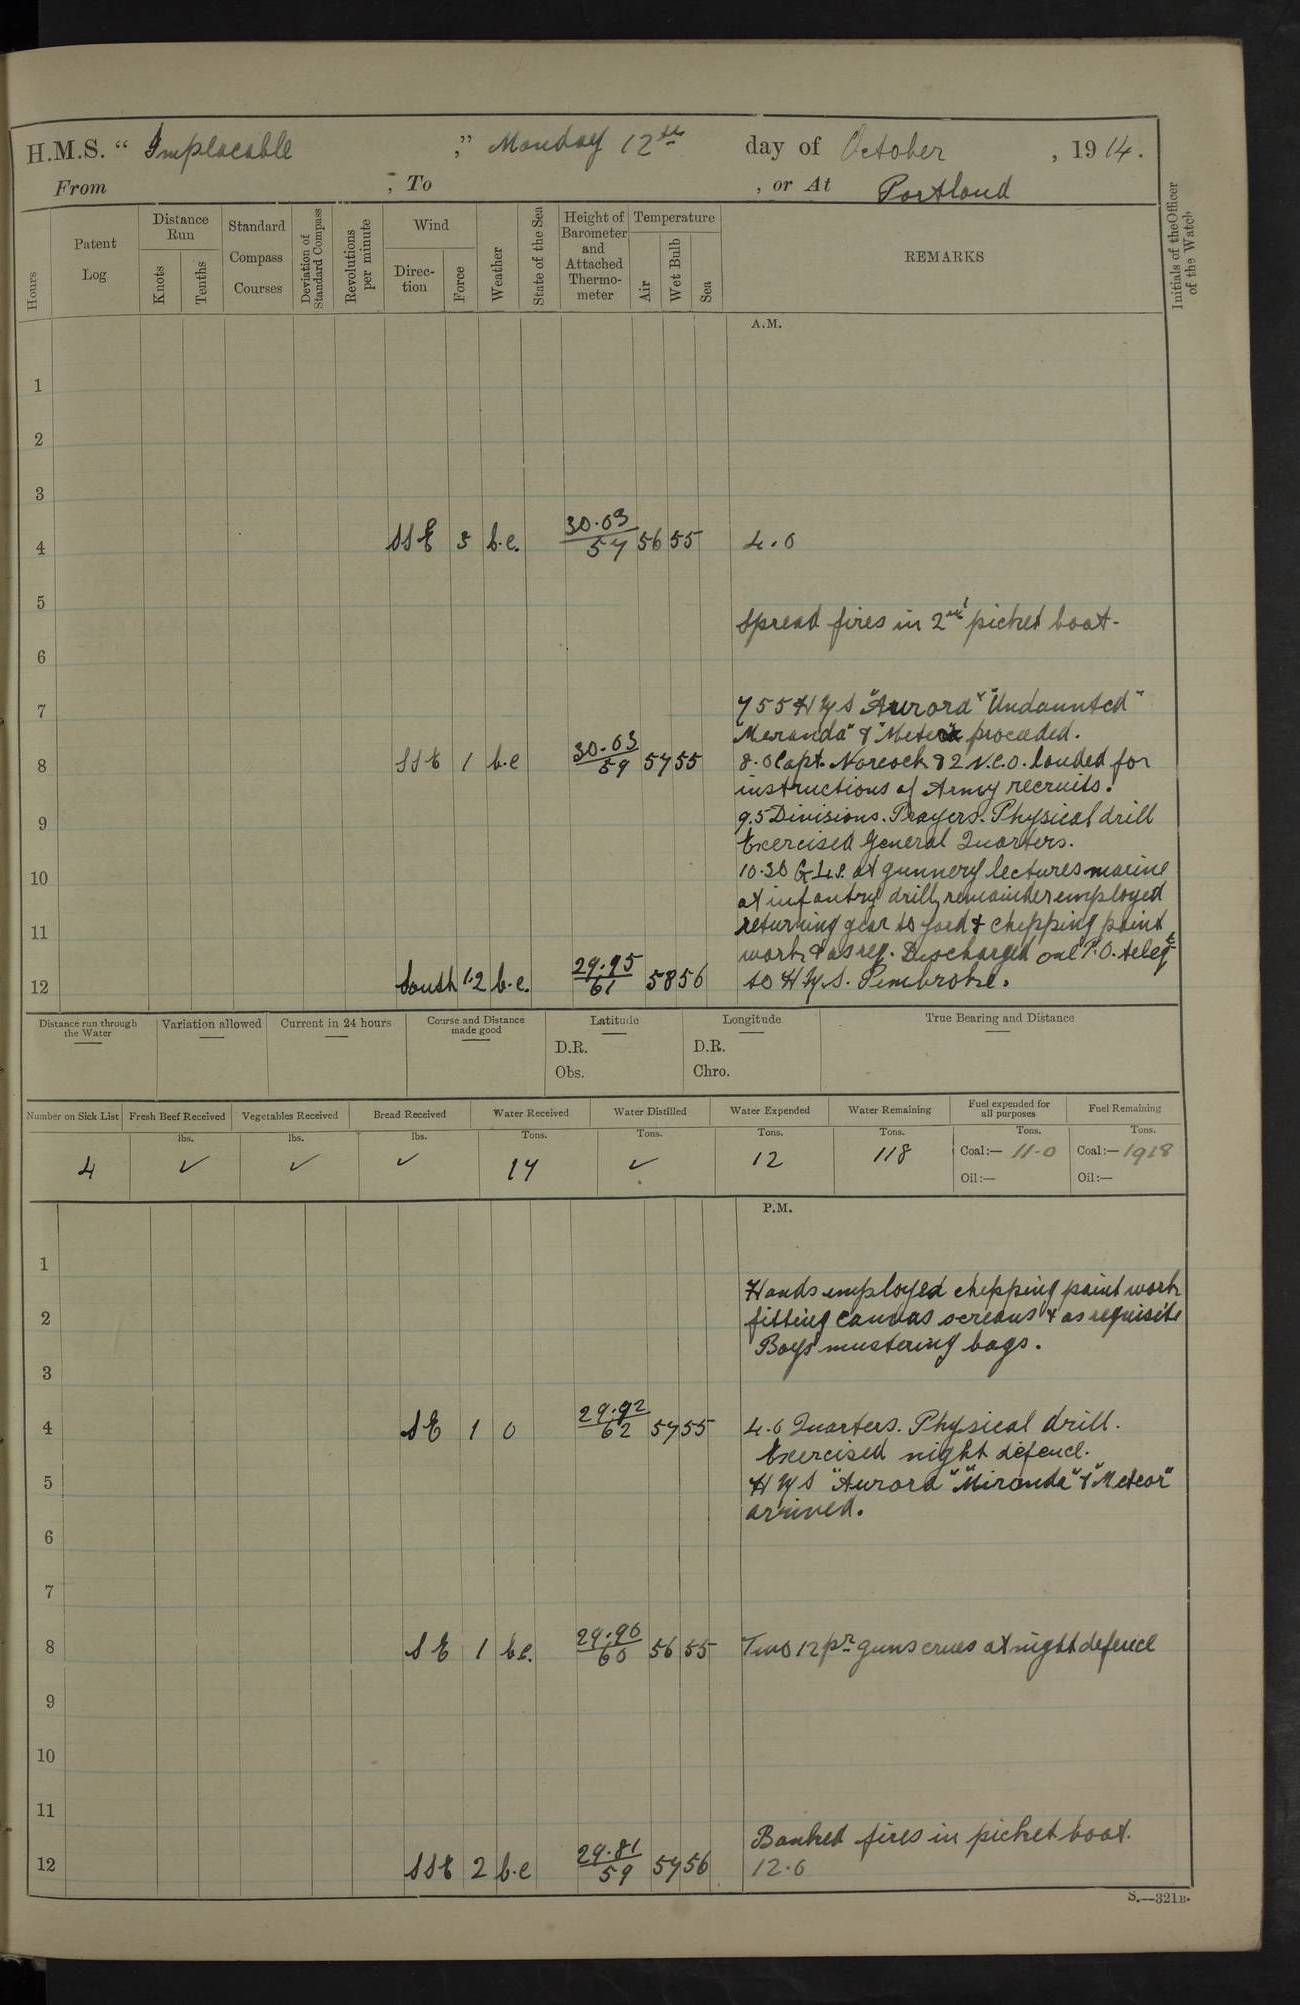 H.M.S. “ Implacable ,” Monday 12th day of October , 1914.
From , To , or At Portland
Hours
Patent Log
Distance Run
Knots
Tenths
Standard Compass Courses
Deviation of Standard Compass
Revolutions per minute
Wind
Direc-tion
Force
Weather
State of the Sea
Height of Barometer and Attached Thermo-meter
Temperature
Air
Wet Bulb
Sea
REMARKS
Initials of the Officer of the Watch
A.M.
1
2
3
4 SSE 3 b.c. 30.03/57 56 55 4.0
5
Spread fires in 2nd picket boat-
6
7 755 HMS "Aurora" "Undaunted"
"Meranda" & "Meteor" proceeded.
8 SSE 1 b.c 30.03/59 57 55 8.0 Capt. Norcock & 2 N.C.O. landed for
instructions of Army recruits.
9 9.5 Divisions. Prayers. Physical drill
Exercised General Quarters.
10 10.30 G.L.s. at gunnery lectures marine
at infantry drill, remainder employed
11 returning gear to yard & chipping paint
work & as req. Discharged one P.O. teleg
12 South 1.2 b.c. 29.95/61 58 56 to HMS. Pembroke.
Distance run through the Water
Variation allowed
Current in 24 hours
Course and Distance made good
Latitude
D.R.
Obs.
Longitude
D.R.
Chro.
True Bearing and Distance
Number on Sick List Fresh Beef Received Vegetables Received Bread Received Water Received Water Distilled Water Expended Water Remaining Fuel expended for all purposes Fuel Remaining
lbs. lbs. lbs. Tons. Tons. Tons. Tons. Tons. Tons.
4 ✓ ✓ ✓ 17 ✓ 12 118 Coal:— 11-0 Coal:— 1918
Oil:— Oil:—
P.M.
1
Hands employed chipping paint work
2 fitting canvas screans & as requisite
Boys mustering bags.
3
4 SE 1 0 29.92/62 57 55 4.0 Quarters. Physical drill.
Exercised night defence.
5 HMS "Aurora" "Miranda" & "Meteor"
arrived.
6
7
8 SE 1 b.c. 29.90/60 56 55 Two 12pr guns crues at night defence
9
10
11
Banked fires in picket boat.
12 SSE 2 b.c 29.81/59 57 56 12.0
S.—321B.